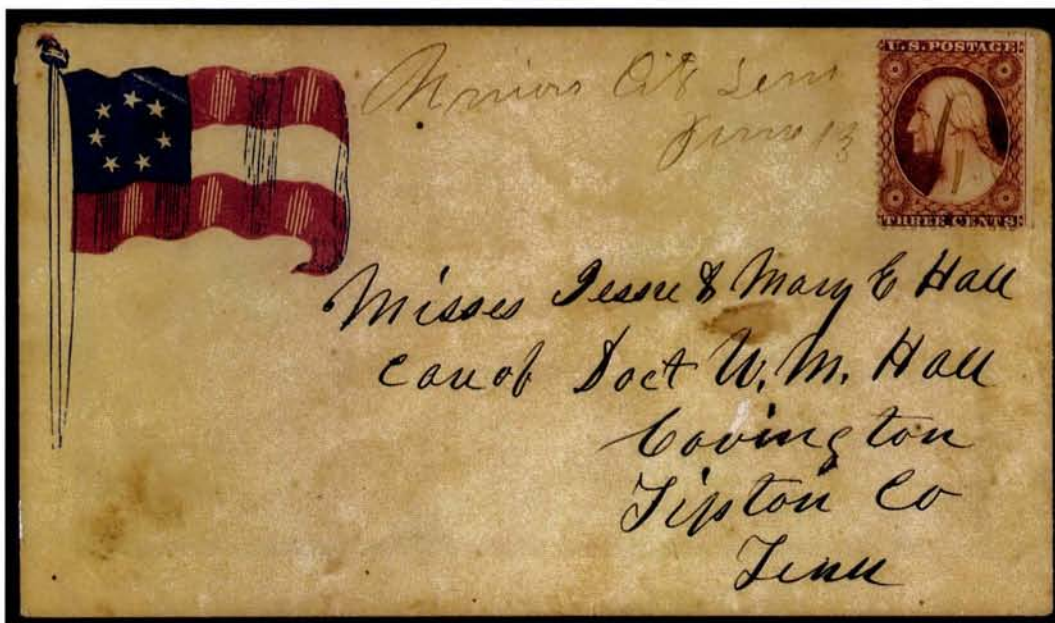 Union City Tenn
June 13
U.S. POSTAGE
THREE CENTS
Misses Jessie & Mary E Hall
care of Doct W. M. Hall
Covington
Tipton Co
Tenn